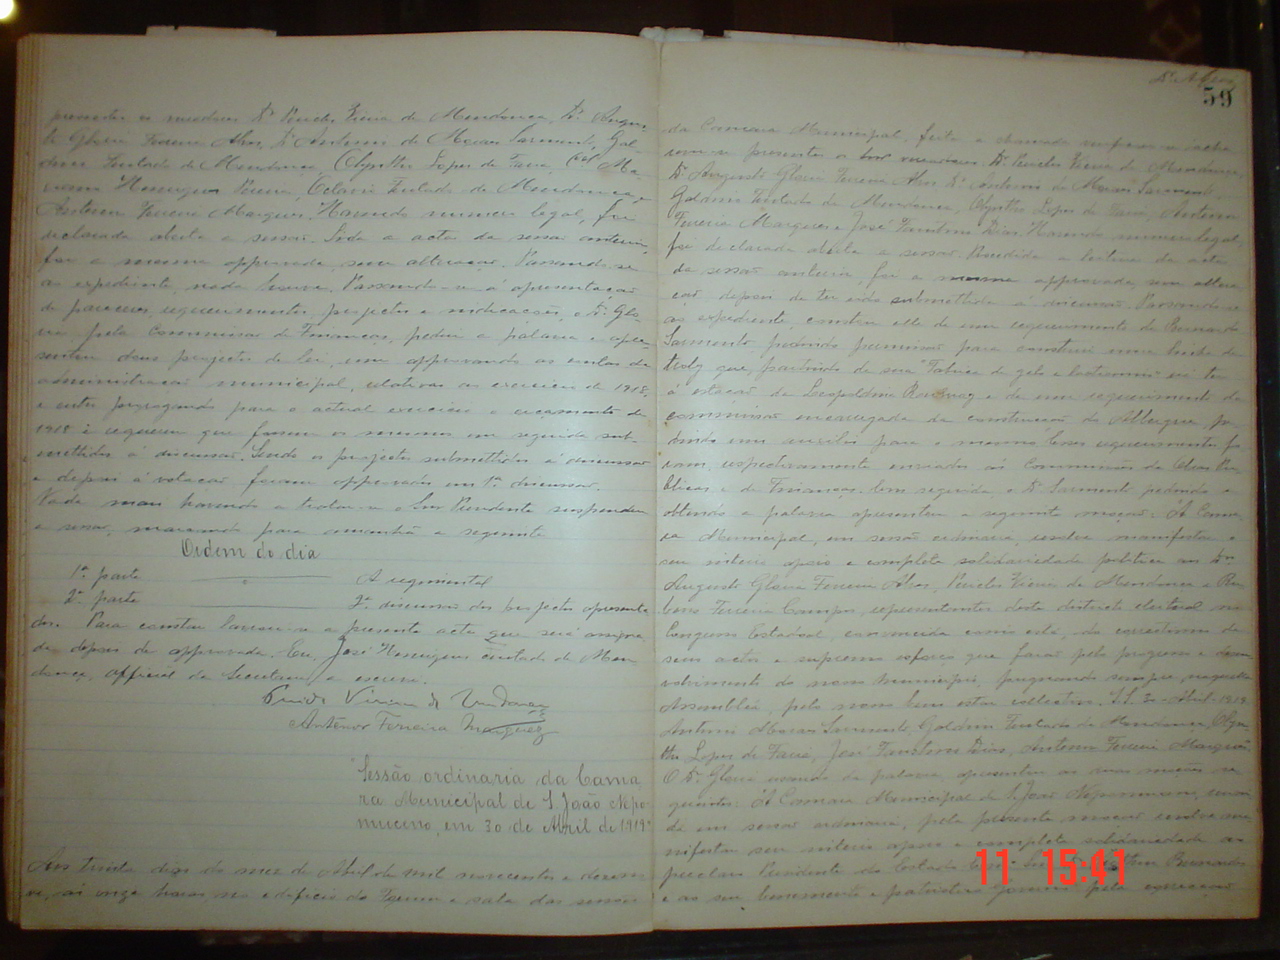 presentes os vereadores Dr. Pericles Vieira de Mendonça, Dr. Augus-
to Gloria Ferreira Alves, Dr. Antonio de Moraes Sarmento, Gal-
dino Furtado de Mendonça, Olyntho Lopes de Faria, Cel. Ma-
Henriques Pereira, Octavio Furtado de Mendonça e
Antenor Ferreira Marques. Havendo numero legal, foi
declarada aberta a sessão. Lida a acta da sessão anterior,
foi a mesma approvada sem alteração. Passando-se
ao expediente, nada houve. Passando-se á apresentação
de pareceres, requerimentos, projectos e indicações, o Dr. Glo-
ria pela Commissão de Finanças, pediu a palavra e apre-
sentou dous projectos de lei, um approvando as contas da
administração municipal, relativas ao exercicio de 1918,
e outro prorogando para o actual exercicio o orçamento de
1918 e requereu que fossem os mesmos em seguida sub-
mettidos á discussão. Sendo os projectos submettidos á discussão
e depois á votação foram approvados em 1ª discussão.
Nada mais havendo a tratar-se o Snr. Presidente suspendeu
a sessão, marcando para amanhã a seguinte
Ordem do dia
1ª parte A regimental
2ª parte 2ª discussão dos projectos apresenta-
dos. Para constar lavrou-se a presente acta que será assigna-
da depois de approvada. Eu, José Henriques Furtado de Men-
donça, official da Secretaria a escrevi.
Vieira de Mendonça
Antenor Ferreira Marques
Sessão ordinaria da Cama-
ra Municipal de S. João Nepo-
muceno, em 30 de Abril de 1919
Aos trinta dias do mez de Abril de mil novecentos e dezeno-
ve, ás onze horas no edificio do Forum e sala das sessões
59
da Camara Municipal, feita a chamada verificou-se acha-
rem-se presentes os vereadores Dr. Pericles Vieira de Mendonça,
Dr. Augusto Gloria Ferreira Alves, Dr. Antonio de Moraes Sarmento,
Galdino Furtado de Mendonça, Olyntho Lopes de Faria, Antenor
Ferreira Marques e José Faustino Dias. Havendo numero legal,
foi declarada aberta a sessão. Procedida a leitura da acta
da sessão anterior, foi a mesma approvada, sem altera-
ção, depois de ter sido submettida á discussão. Passando-se
ao expediente, constou elle de um requerimento de Bernardo
Sarmento pedindo permissão para construir uma linha de
trolys que, partindo de sua Fabrica de gelo e lacticinios vá ter
á estação da Leopoldina Railway e de um requerimento da
commissão encarregada da construcção do Albergue pe-
dindo um auxilio para o mesmo. Esses requerimentos fo-
ram, respectivamente enviados ás Commissões de Obras Pu-
blicas e de Finanças. Em seguida, o Dr. Sarmento pedindo e
obtendo a palavra apresentou a seguinte moção: A Cama-
ra Municipal, em sessão ordinaria, resolve manifestar o
seu inteiro apoio e completa solidariedade politica aos Drs.
Augusto Gloria Ferreira Alves, Pericles Vieira de Mendonça e Ru-
bens Ferreira Campos, representantes deste districto eleitoral no
Congresso Estadual, convencida como está, do
seus actos e supremo esforço que farão pelo progresso e desen-
volvimento do nosso municipio, pugnando sempre, naquella
Assembléa, pelo nosso bem estar collectivo. S.S. 30-Abril-1919
Antonio Moraes Sarmento, Galdino Furtado de Mendonça, Olyn-
tho Lopes de Faria, José Faustino Dias, Antenor Ferreira Marques.
O Dr. Gloria usando da palavra, apresentou as duas moções se-
guintes: A Camara Municipal de S. João Nepomuceno, reuni-
da em sessão ordinaria, pela presente moção resolve ma-
nifestar seu inteiro apoio e completa solidariedade ao
preclaro Presidente do Estado Bernardes
e ao seu benemerito e patriotico governo pela
11 15:41